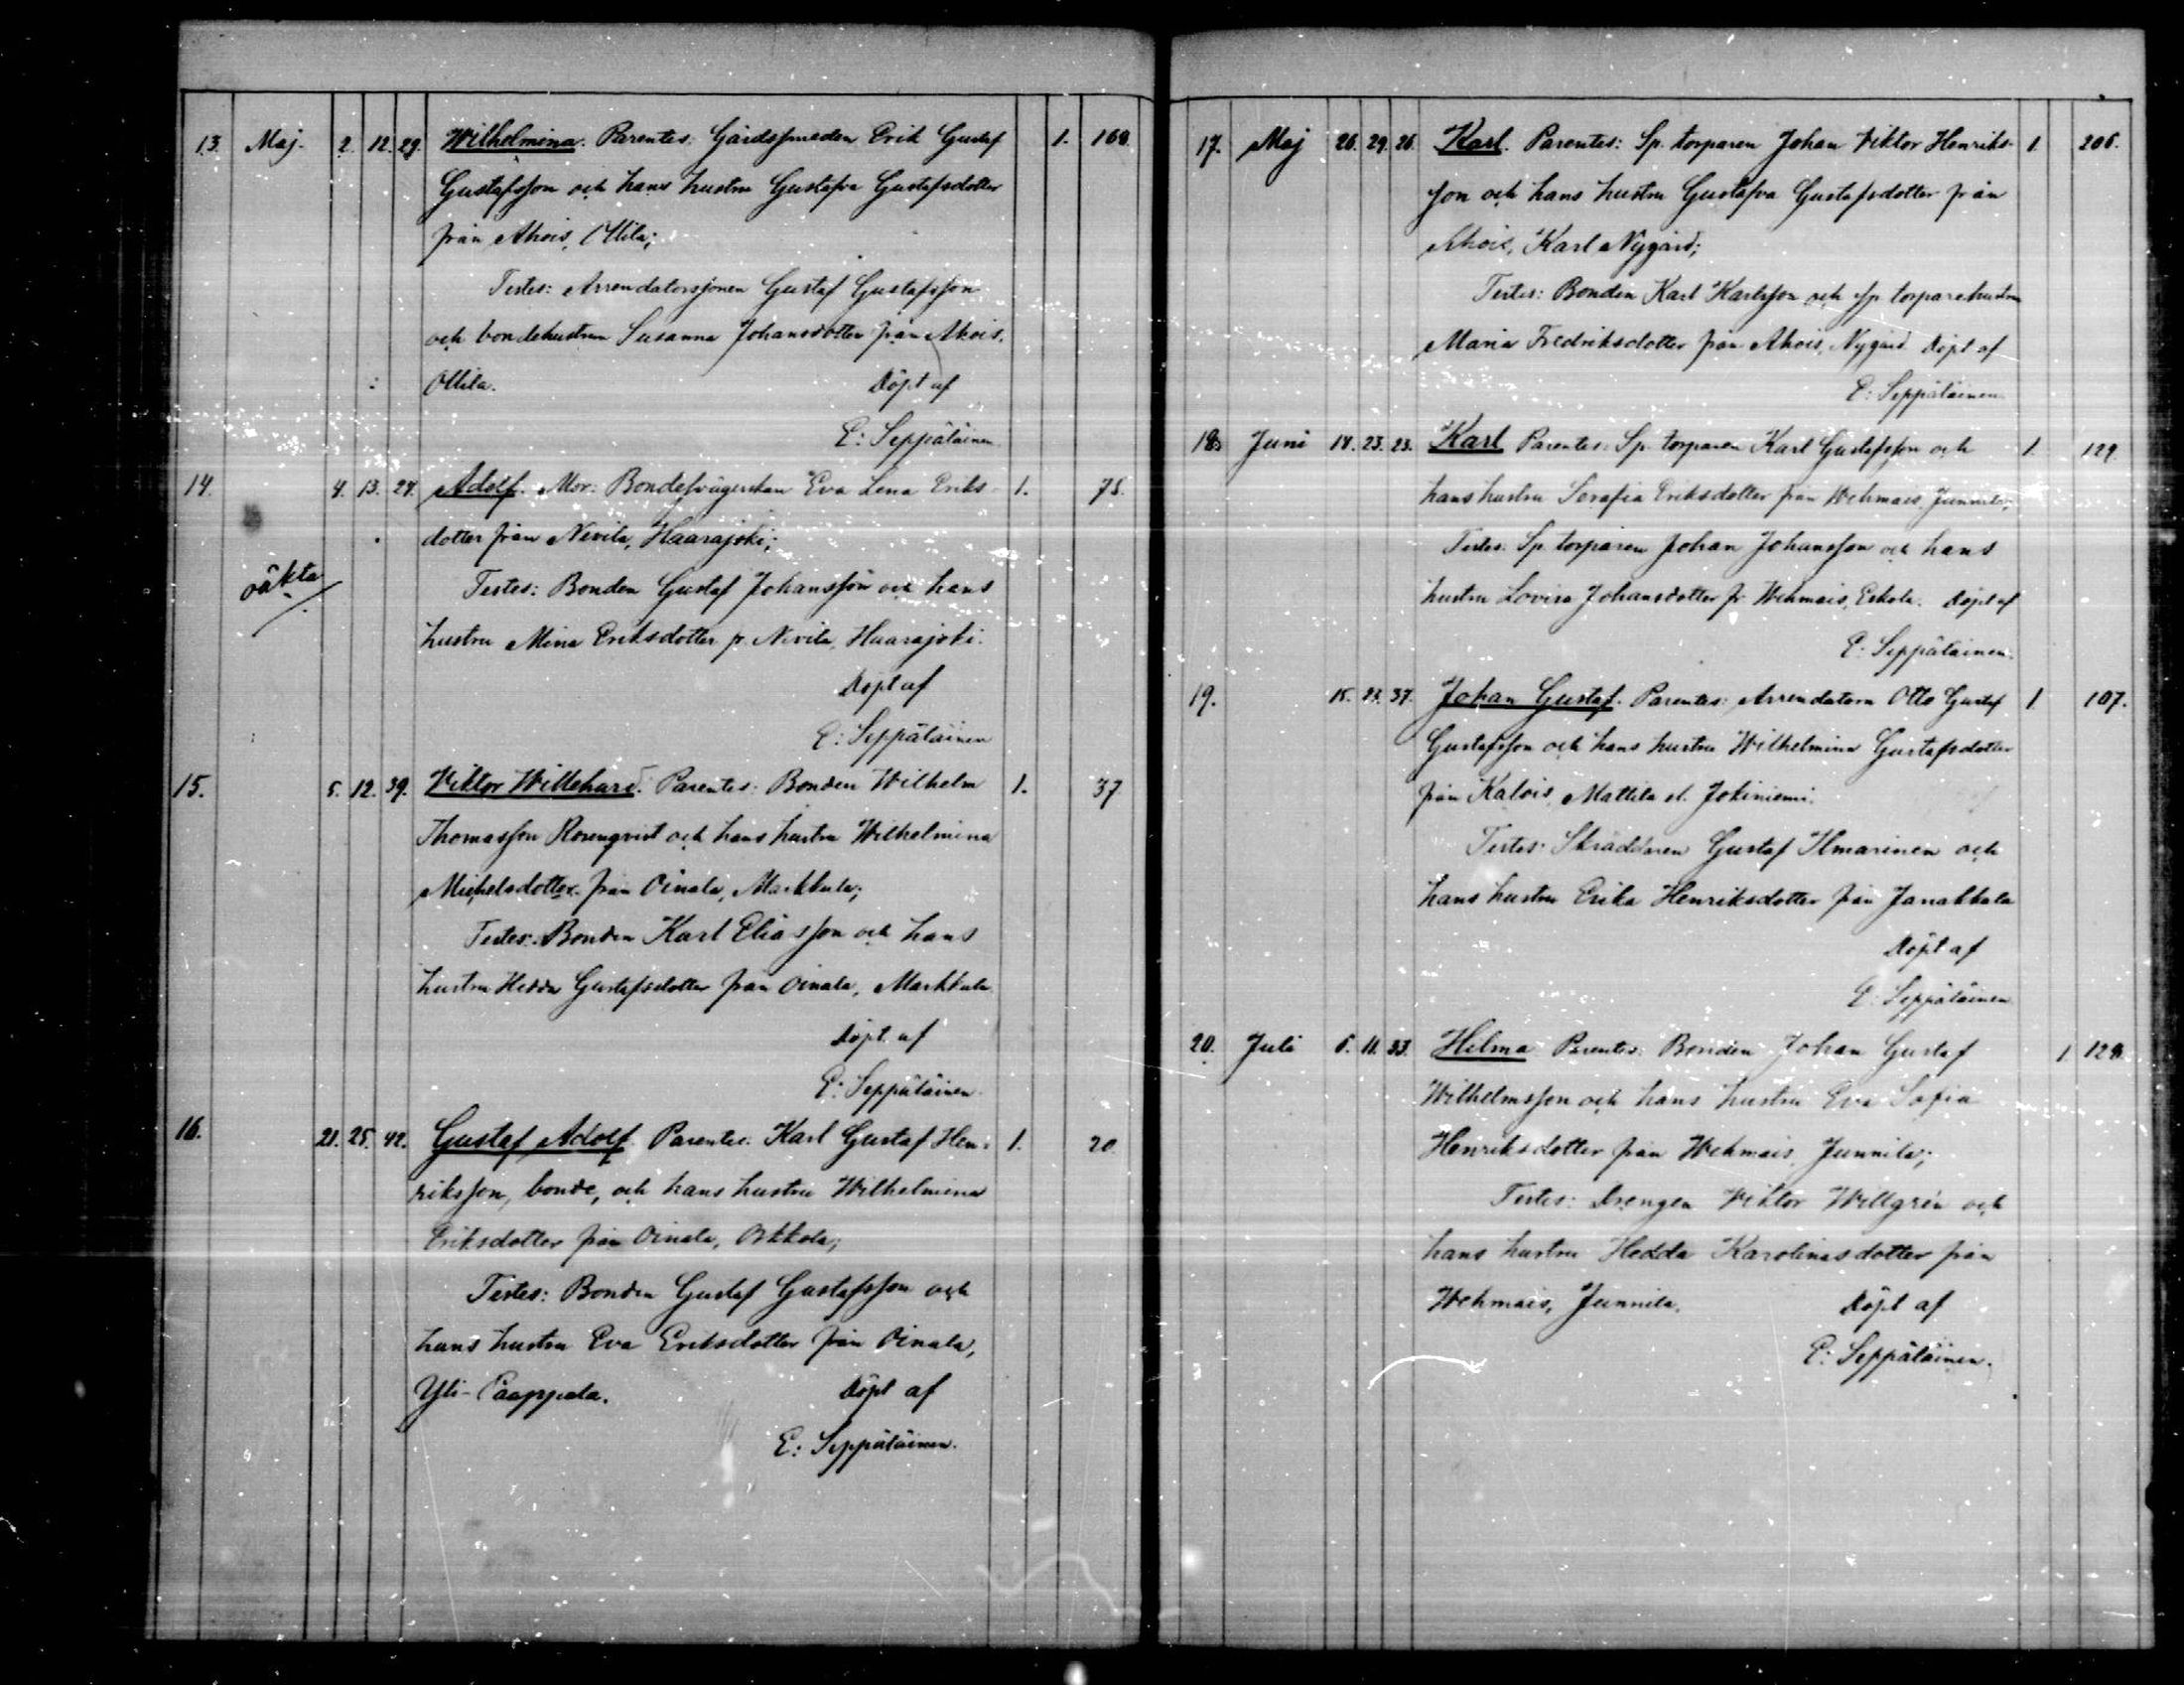 13. Maj. 2. 12. 29. Wilhelmina. Parentes: Gårdssmeden Erik Gustaf 1. 160.
Gustafsson och hans hustru Gustafva Gustafsdotter
från Ahois, Ollila;
Testes: Arrendatorssonen Gustaf Gustafsson
och bondehustrun Susanna Johansdotter från Ahois,
Ollila. Döpt af
E: Seppäläinen
14. 4. 13. 24. Adolf. Mor: Bondesvägerskan Eva Lena Eriks- 1. 75.
dotter från Nevila, Haarajoki;
oäkta
Testes: Bonden Gustaf Johansson och hans
hustru Mina Eriksdotter fr. Nevila, Haarajoki.
Döpt af
E: Seppäläinen
15. 5. 12. 39. Viktor Willehard. Parentes: Bonden Wilhelm 1. 37
Thomasson Rosenqvist och hans hustru Wilhelmina
Michelsdotter från Oinala, Markkula;
Testes: Bonden Karl Eliasson och hans
hustru Hedda Gustafsdotter från Oinala, Markkula
Döpt af
E: Seppäläinen.
16. 21. 25. 42. Gustaf Adolf. Parentes: Karl Gustaf Hen- 1. 20.
riksson, bonde, och hans hustru Wilhelmina
Eriksdotter från Oinala, Orkkola;
Testes: Bonden Gustaf Gustafsson och
hans hustru Eva Eriksdotter från Oinala,
Yli-Caappala. Döpt af
E: Seppäläinen.
17. Maj 26. 29. 26. Karl. Parentes: Sp. torparen Johan Viktor Henriks- 1. 206.
son och hans hustru Gustafva Gustafsdotter från
Ahois, Karl Nygård;
Testes: Bonden Karl Karlsson och sp. torparehustrun
Maria Fredriksdotter från Ahois, Nygård Döpt af
E: Seppäläinen
18. Juni 18. 23. 23. Karl Parentes: Sp. torparen Karl Gustafsson och 1. 129.
hans hustru Serafia Eriksdotter från Wehmais, Junnila;
Testes: Sp. torparen Johan Johansson och hans
hustru Lovisa Johansdotter fr. Wehmais, Eskola. Döpt af
E: Seppäläinen.
19. 15. 23. 37. Johan Gustaf. Parentes: Arrendatorn Otto Gustaf 1. 107.
Gustafsson och hans hustru Wilhelmina Gustafsdotter
från Kalois, Mattila el. Jokiniemi.
Testes: Skräddaren Gustaf Ilmarinen och
hans hustru Erika Henriksdotter från Janakkala
Döpt af
E: Seppäläinen
20. Juli 6. 11. 33. Helma Parentes: Bonden Johan Gustaf 1. 129.
Wilhelmsson och hans hustru Eva Sofia
Henriksdotter från Wehmais, Junnila;
Testes: Drengen Viktor Willgrén och
hans hustru Hedda Karolinasdotter från
Wehmais, Junnila. Döpt af
E: Seppäläinen.